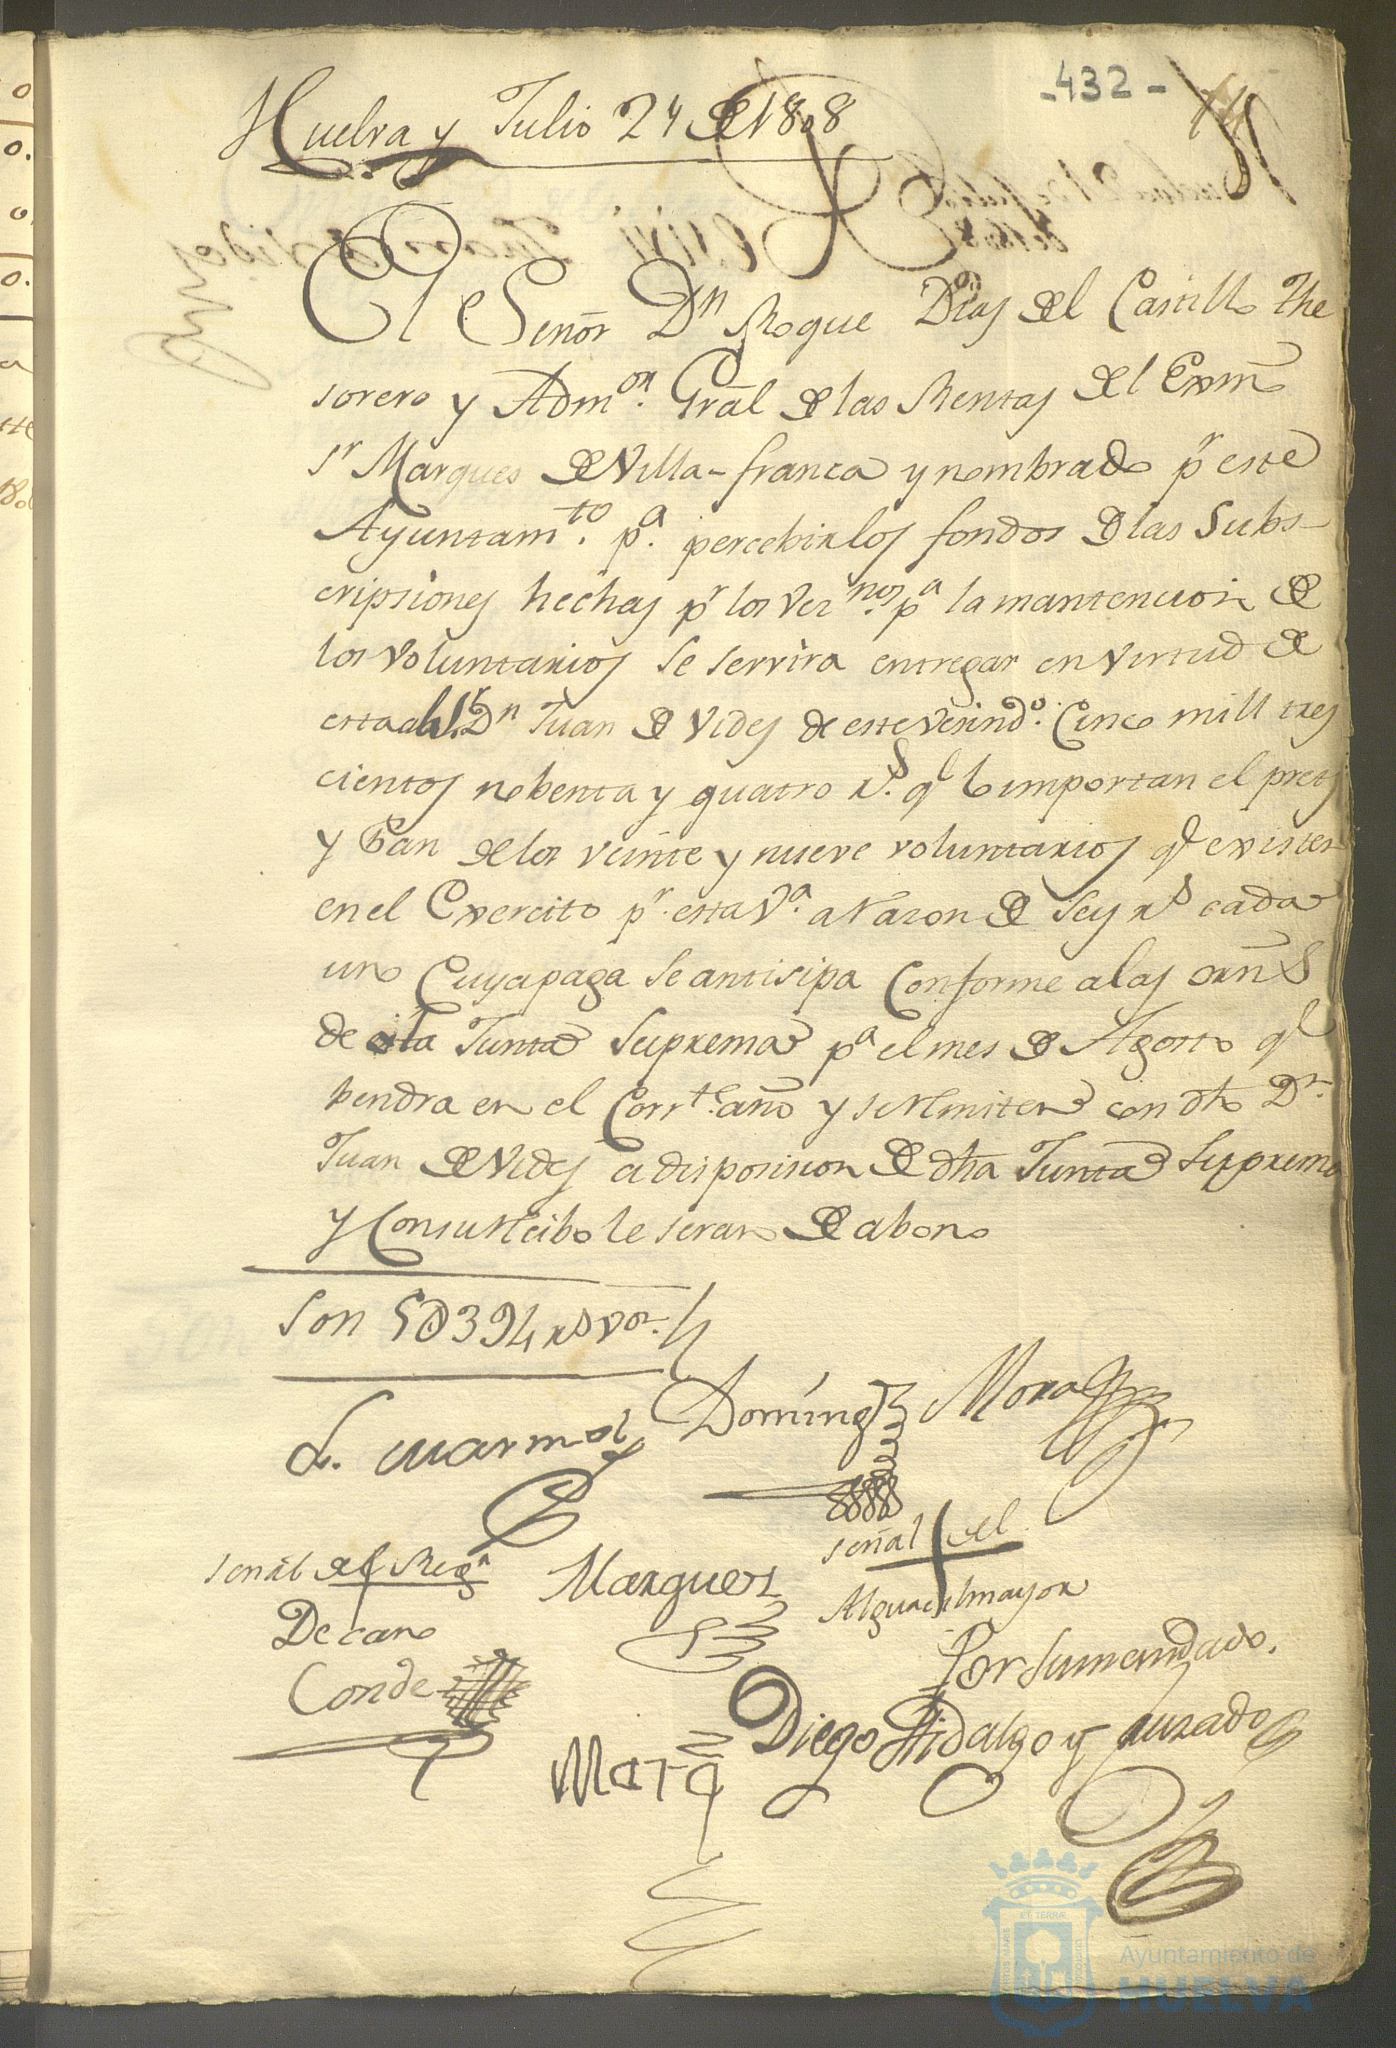 -432-
Huelva y Julio 24 de 1808
El Señor Dn Roque Dias del Castillo The
sorero y Admor. Gral de las Rentas del Exmo
Sr Marques de Villa-franca y nombrado pr este
Ayuntamto. pa. percebir los fondos de las Subs-
cripsiones hechas pr los Vecnos. pa la mantencion de
los voluntarios se servira entregar en virtud de
esta al Sr. Dn Juan de Vides de este Vesindo. Cinco mill tres
cientos nobenta y quatro rs. qe importan el prets
y Pan de los veinte y nueve voluntarios qe existen
en el Exercito pr. esta Va. a razon de Seis rs cada
uno Cuya paga se antisipa Conforme a las orns
de la Junta Suprema pa el mes de Agosto qe
bendra en el Corrte. año y se remiten con dho Dn
Juan de Vides a disposision de dha Junta Suprema
y Con su recibo le seran de abono
Son 5@394 rs von.
L. Marmol
Domíngz
Mora
señal del Regr
Decano
Conde
Marquez
señal del
Alguacil mayor
Por su mandado.
Diego Hidalgo y Jurado
Ayuntamiento de
HUELVA